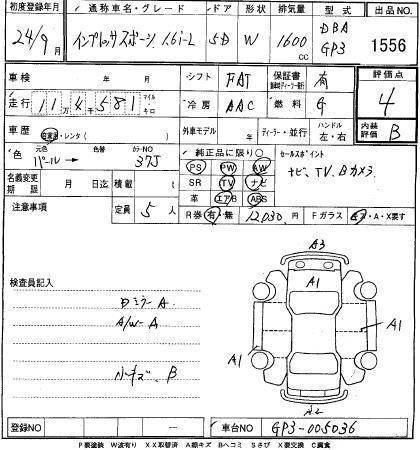 初度登録年月 通称車名・グレード ドア 形状 排気量 型式 出品NO.
24/9月 インプレッサスポーツ 1.6i-L 5D W 1600cc DBA GP3 1556
車検 年 月 シフト FAT 保証書 有 評価点
走行 11万4千581 マイル・キロ 冷房 AAC 燃料 G 4
車歴 自家用・レンタ ( ) 外車モデル 年 ディーラー・並行 ハンドル 左・右 内装評価 B
色 元色 パール 色替 カラーNO 37J 純正品に限り○ セールスポイント
PS PW AW ナビ、TV、Bカメラ、
名義変更期限 月 日迄 積載 t SR TV ナビ
注意事項 定員 5人 革 エアB ABS
R券 有・無 12030円 Fガラス A・X要す
A3
検査員記入 A1
Dミラー A
A/W-A
A1
A1
小キズ、B
A2
登録NO ー 車台NO GP3-005036
P要塗装 W波有り XX取替済 A線キズ Bヘコミ Sさび X要交換 C腐食